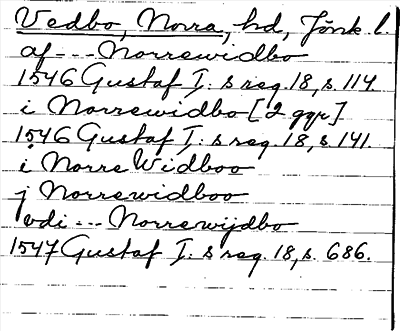 Vedbo, Norra, hd, Jönk. l.
af --- Norrewidbo
1546 Gustaf I:s reg. 18, s. 114.
i Norrewidbo [2 ggr]
1546 Gustaf I:s reg. 18, s. 141.
i Norre Widboo
j Norrewidboo
vdi --- Norrewijdbo
1547 Gustaf I:s reg. 18, s. 686.